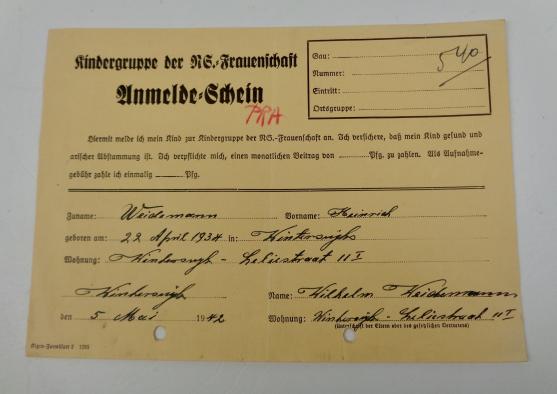 Kindergruppe der NS.-Frauenschaft
Anmelde-Schein
Gau:
Nummer:
Eintritt:
Ortsgruppe:
540
Hiermit melde ich mein Kind zur Kindergruppe der NS.-Frauenschaft an. Ich versichere, daß mein Kind gesund und
arischer Abstammung ist. Ich verpflichte mich, einen monatlichen Beitrag von Pfg. zu zahlen. Als Aufnahme-
gebühr zahle ich einmalig Pfg.
Zuname: Weidemann Vorname: Heinrich
geboren am: 22 April 1934 in:
Wohnung: Leliestraat 11 I
Name: Wilhelm Weidemann
den 5 Mai 1942 Wohnung: Leliestraat 11 I
(Unterschrift der Eltern oder des gesetzlichen Vertreters)